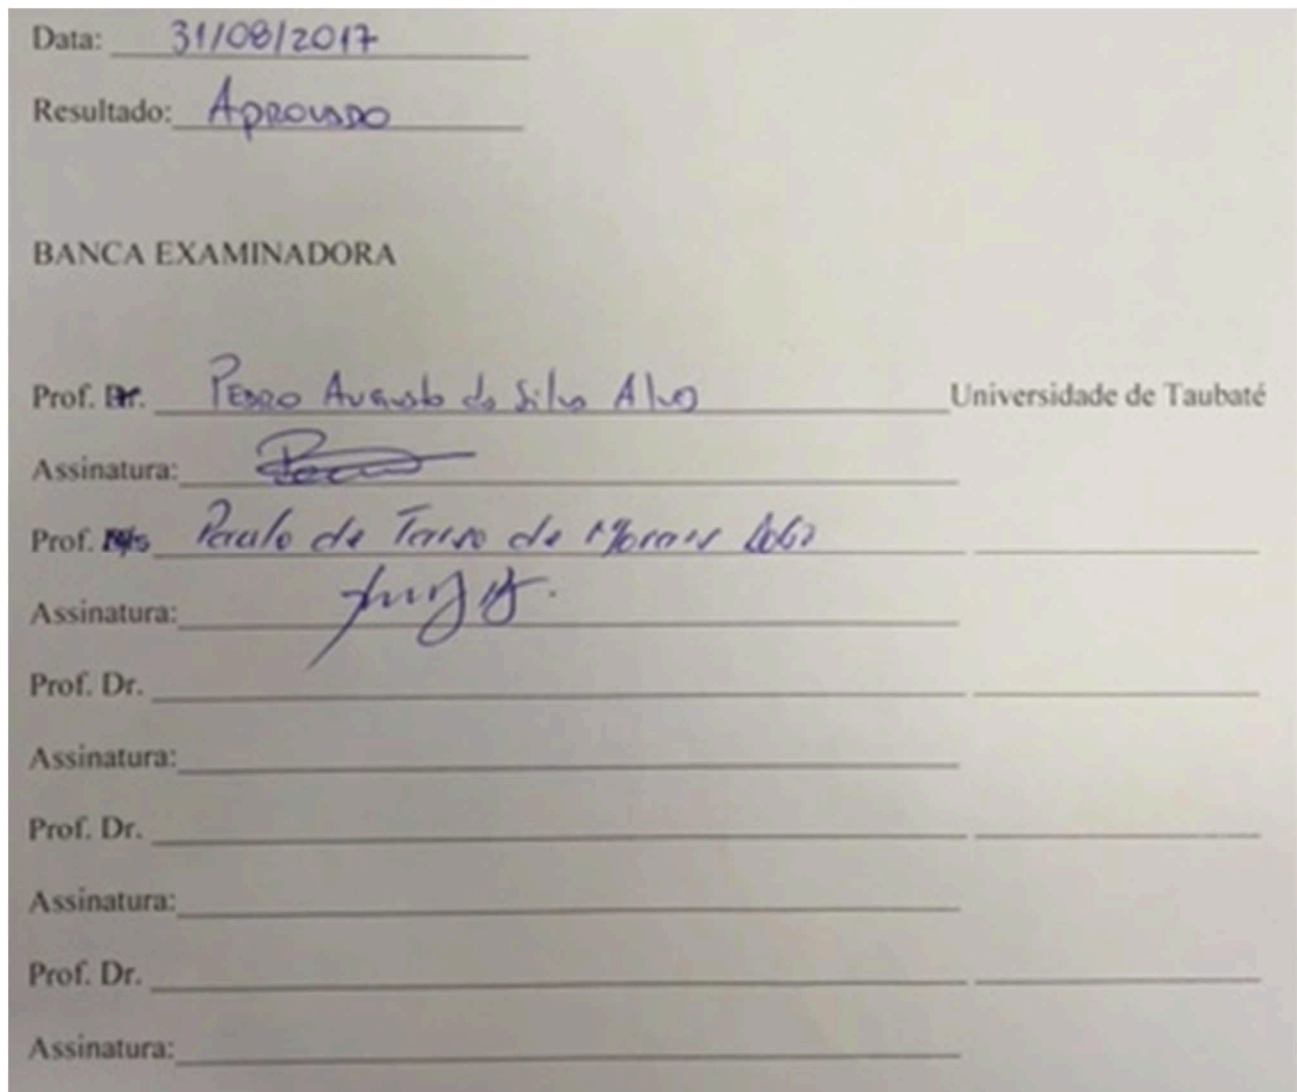 Data: 31/08/2017
Resultado: Aprovado
BANCA EXAMINADORA
Prof. Dr. Pedro Augusto da Silva Alves Universidade de Taubaté
Assinatura:
Prof. Ms Paulo de Tarso de Moraes Lobo
Assinatura:
Prof. Dr.
Assinatura:
Prof. Dr.
Assinatura:
Prof. Dr.
Assinatura: